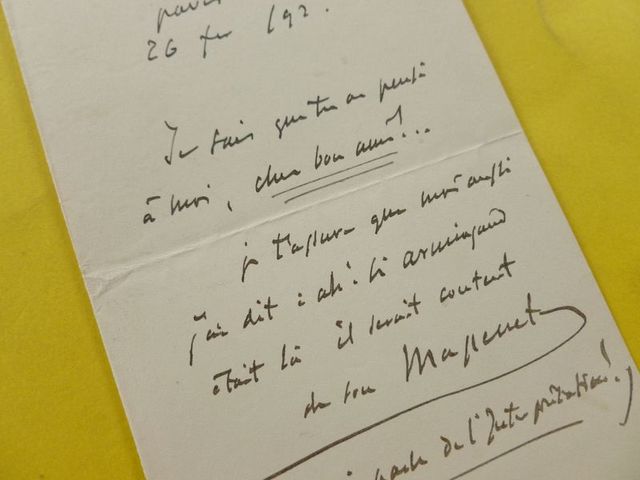 26
Je sais que tu as pensé
à moi, cher bon ami!...
je t'assure que moi aussi
j'ai dit : ah! si armingaud
était là il serait content
de son Massenet
parle de l'Interprétation!)